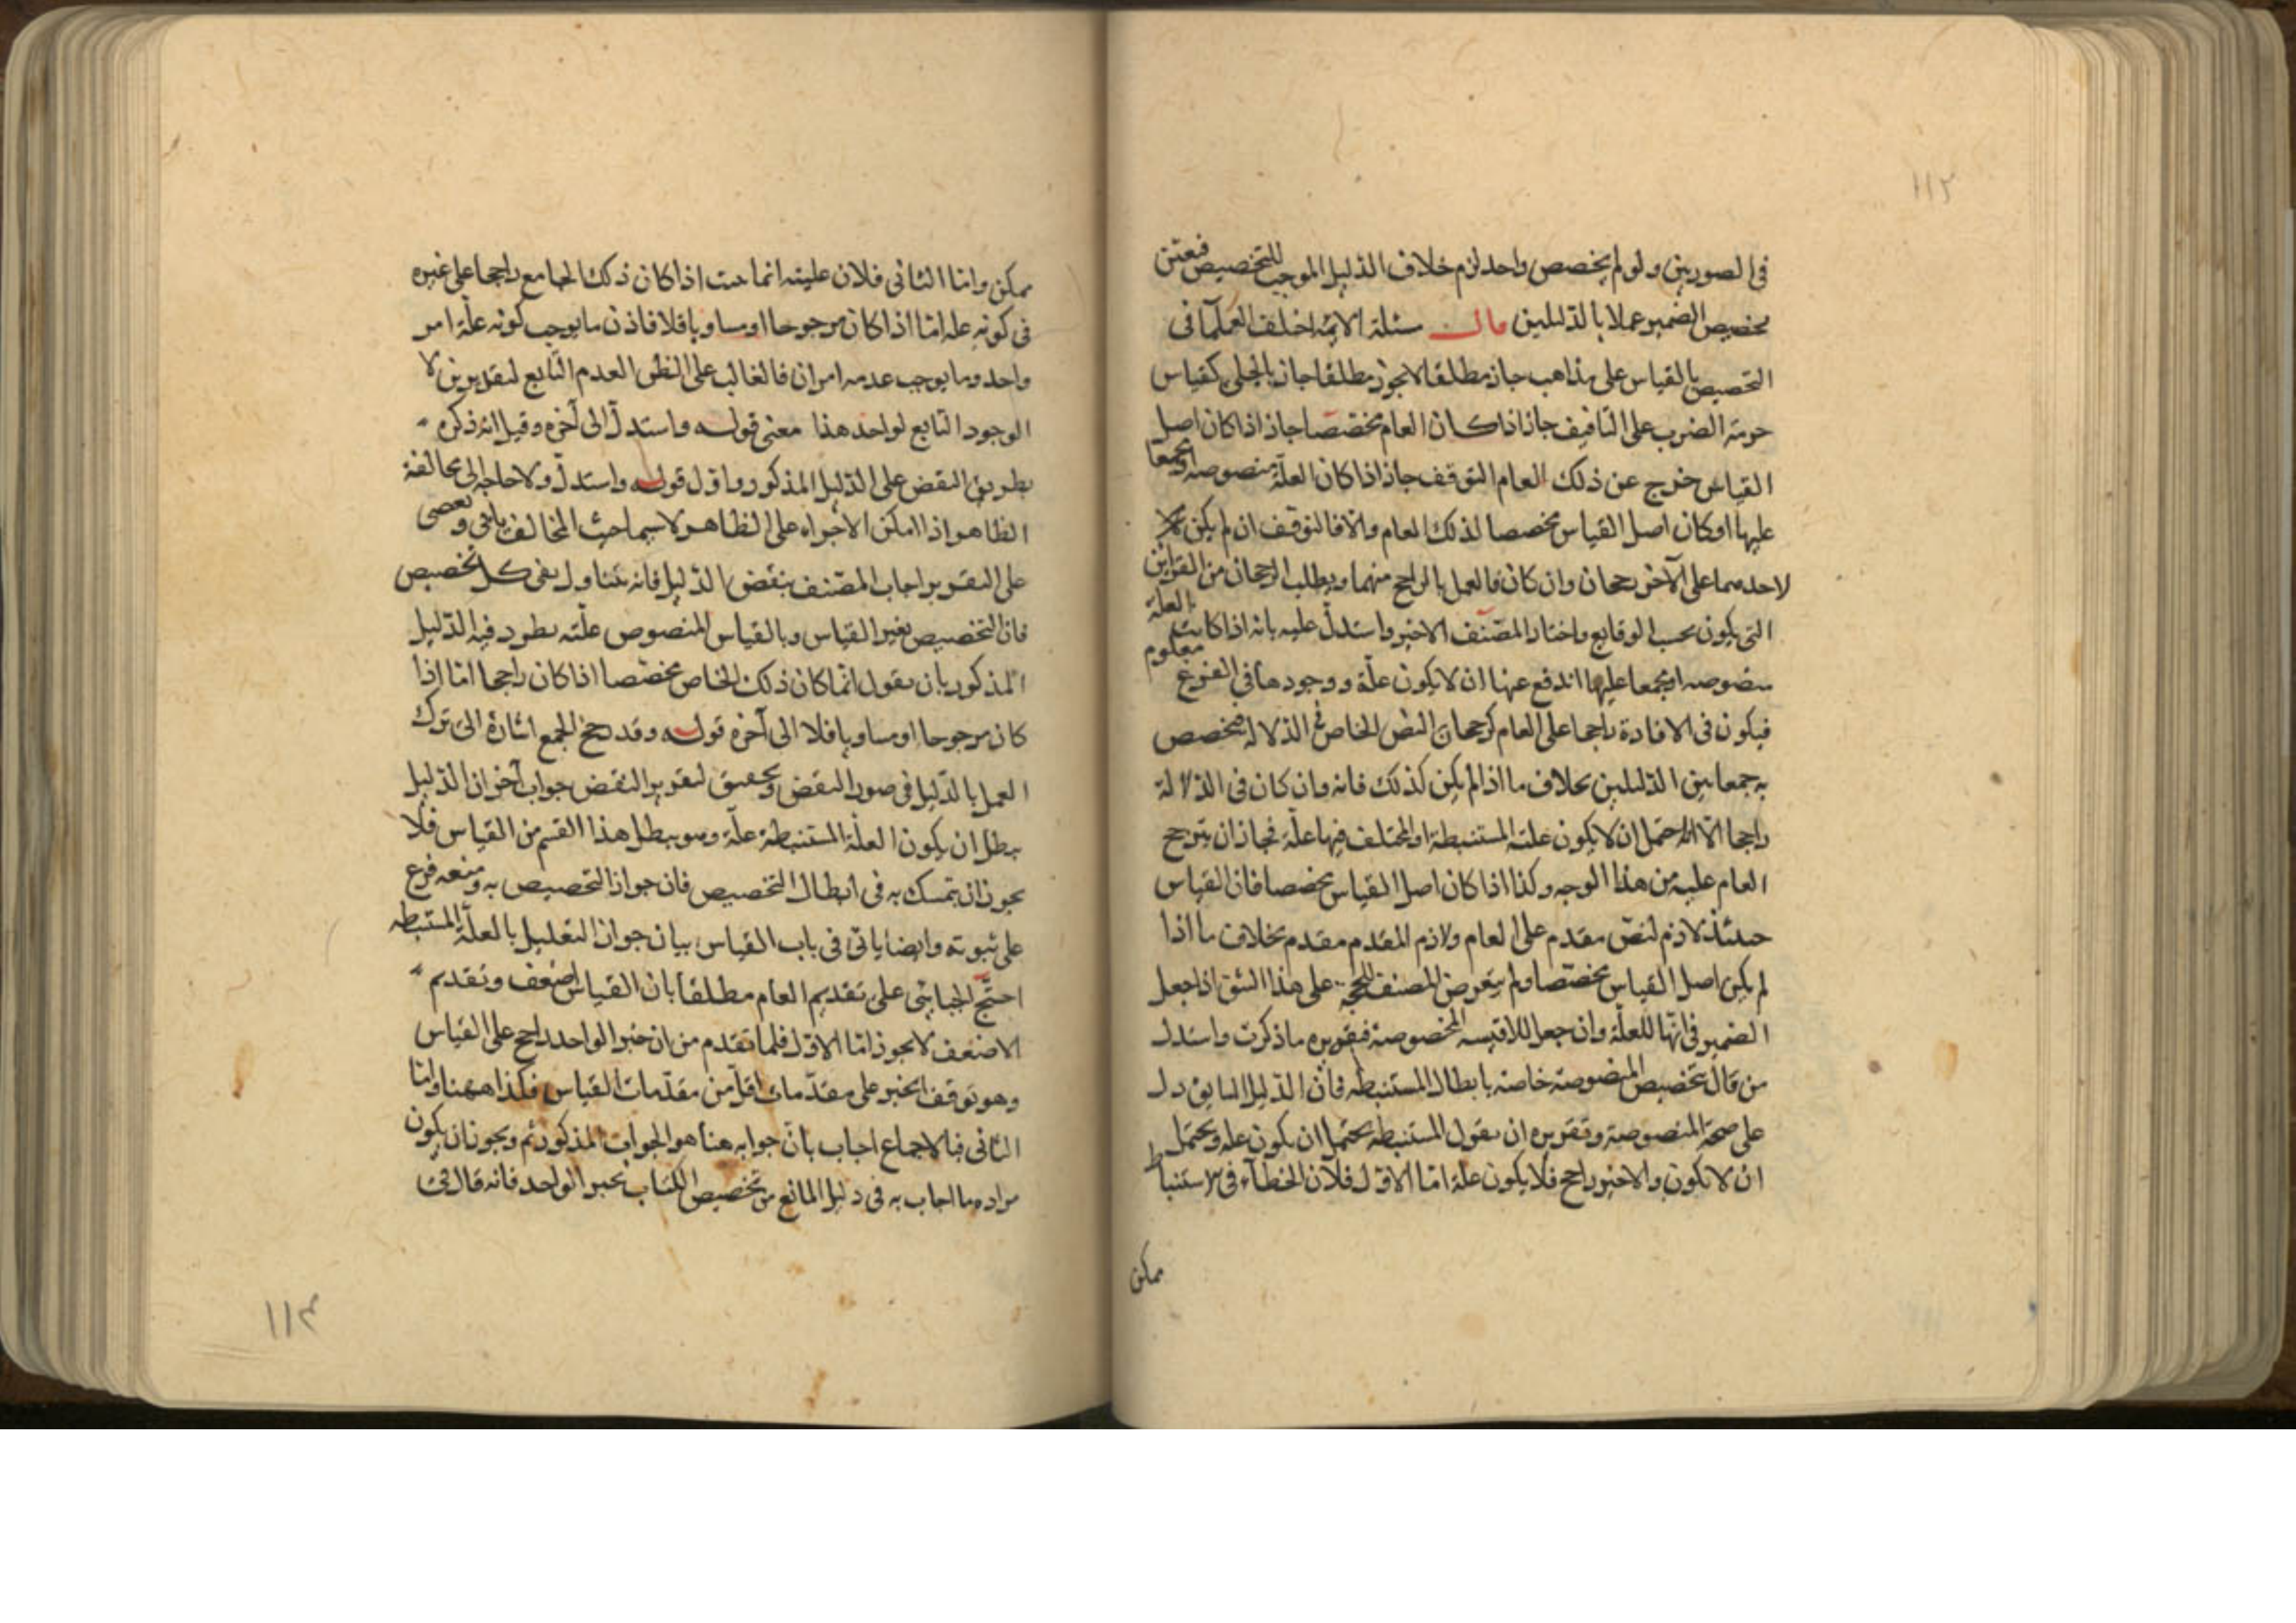 ١١٢
في الصورتين ولو لم يخصص واحد لزم خلاف الدليل الموجب للتخصيص فعتن
تخصيص الضمير عملا بالدليلين قال مسئلة الائمة اختلف العلمآ في
التخصيص بالقياس على مذاهب جاز مطلقا لا يجوز مطلقا جاز بالجلي كقياس
حرمة الضرب على التافيف جاز اذا كان العام مخصّصا جاز اذا كان اصل
القياس خرج عن ذلك العام التوقف جاز اذا كان العلّة منصوصة او مجمعا
عليها او كان اصل القياس مخصصا لذلك العام والا فالتوقف ان لم يكن
لاحدهما على الآخر رجحان وان كان فالعمل بالراجح منهما ويطلب الرجحان من القراين
التي يكون بحسب الوقايع واختار المصنّف الاخير واستدلّ عليه بانه اذا كانت العلة
منصوصة او مجمعا عليها اندفع عنها ان لا يكون علّة ووجودها في الفرع معلوم
فيكون في الافادة راجحا على العام كرجحان النص الخاص في الدلالة فيخصص
به جمعا بين الدليلين بخلاف ما اذا لم يكن كذلك فانه وان كان في الدلالة
راجحا الّا انه احتمل ان لا يكون علته المستنبطة او المختلف فيها علّة فجاز ان يترجح
العام عليه من هذا الوجه وكذا اذا كان اصل القياس مخصصا فان القياس
حينئذ لازم لنصّ مقدم على العام ولازم المقدم مقدم بخلاف ما اذا
لم يكن اصل القياس مخصّصا ولم يتعرض المصنف للحجّة على هذا الشق اذا جعل
الضمير في انّها للعلّة وان جعل للاقيسة المخصوصة فتقريره ما ذكرت واستدل
من قال بتخصيص المنصوصة خاصة بابطال المستنبطة فانّ الدليل السابق دل
على صحة المنصوصة وتقريره ان يقول المستنبطة يحتمل ان يكون علة ويحتمل
ان لا يكون والاخير راجح فلا يكون علّة امّا الاوّل فلان الخطآء في الاستنباط
ممكن
ممكن وامّا الثاني فلان عليته انما اذا كان ذلك الجامع راجحا على غيره
في كونه علة امّا اذا كان مرجوحا او مساويا فلا فاذن ما يوجب كونه علّة امر
واحد وما يوجب عدمه امران فالغالب على الظن العدم التابع لتقديرين لا
الوجود التابع لواحد هذا معنى قوله واستدلّ الى آخره وقيل انه ذكره
بطريق النقض على الدليل المذكور واوّل قوله واستدلّ ولا حاجة الى مخالفة
الظاهر اذا امكن الاجراء على الظاهر لا سيما حيث المخالف
على التقرير اجاب المصنف بنقض الدليل فانه يتناول نفي كل تخصيص
فان التخصيص بغير القياس وبالقياس المنصوص علّته يطرد فيه الدليل
المذكور بان يقول انّما كان ذلك الخاص مخصّصا اذا كان راجحا امّا اذا
كان مرجوحا او مساويا فلا الى آخره قوله وقد رجح الجمع اشارة الى ترك
العمل بالدليل في صور النقض وتحقيق لتقرير النقض جواب آخر ان الدليل
يبطل ان يكون العلّة المستنبطة علّة وهو يبطل هذا القسم من القياس فلا
يجوز ان يتمسك به في ابطال التخصيص فان جواز التخصيص به ومنعه فرع
على ثبوته وايضا ياتي في باب القياس بيان جواز التعليل بالعلّة المستنبطة
احتجّ الجبايي على تقديم العام مطلقا بان القياس اضعف وتقديم
الاضعف لا يجوز امّا الاوّل فلما تقدم من ان خبر الواحد راجح على القياس
وهو توقف الخبر على مقدّمات اقلّ من مقدّمات القياس فكذا ههنا وامّا
الثاني فبالاجماع اجاب بانّ جوابه هنا هو الجواب المذكور ثم ويجوز ان يكون
مراده ما اجاب به في دليل المانع من تخصيص الكتاب بخبر الواحد فانه قال في
١١٣